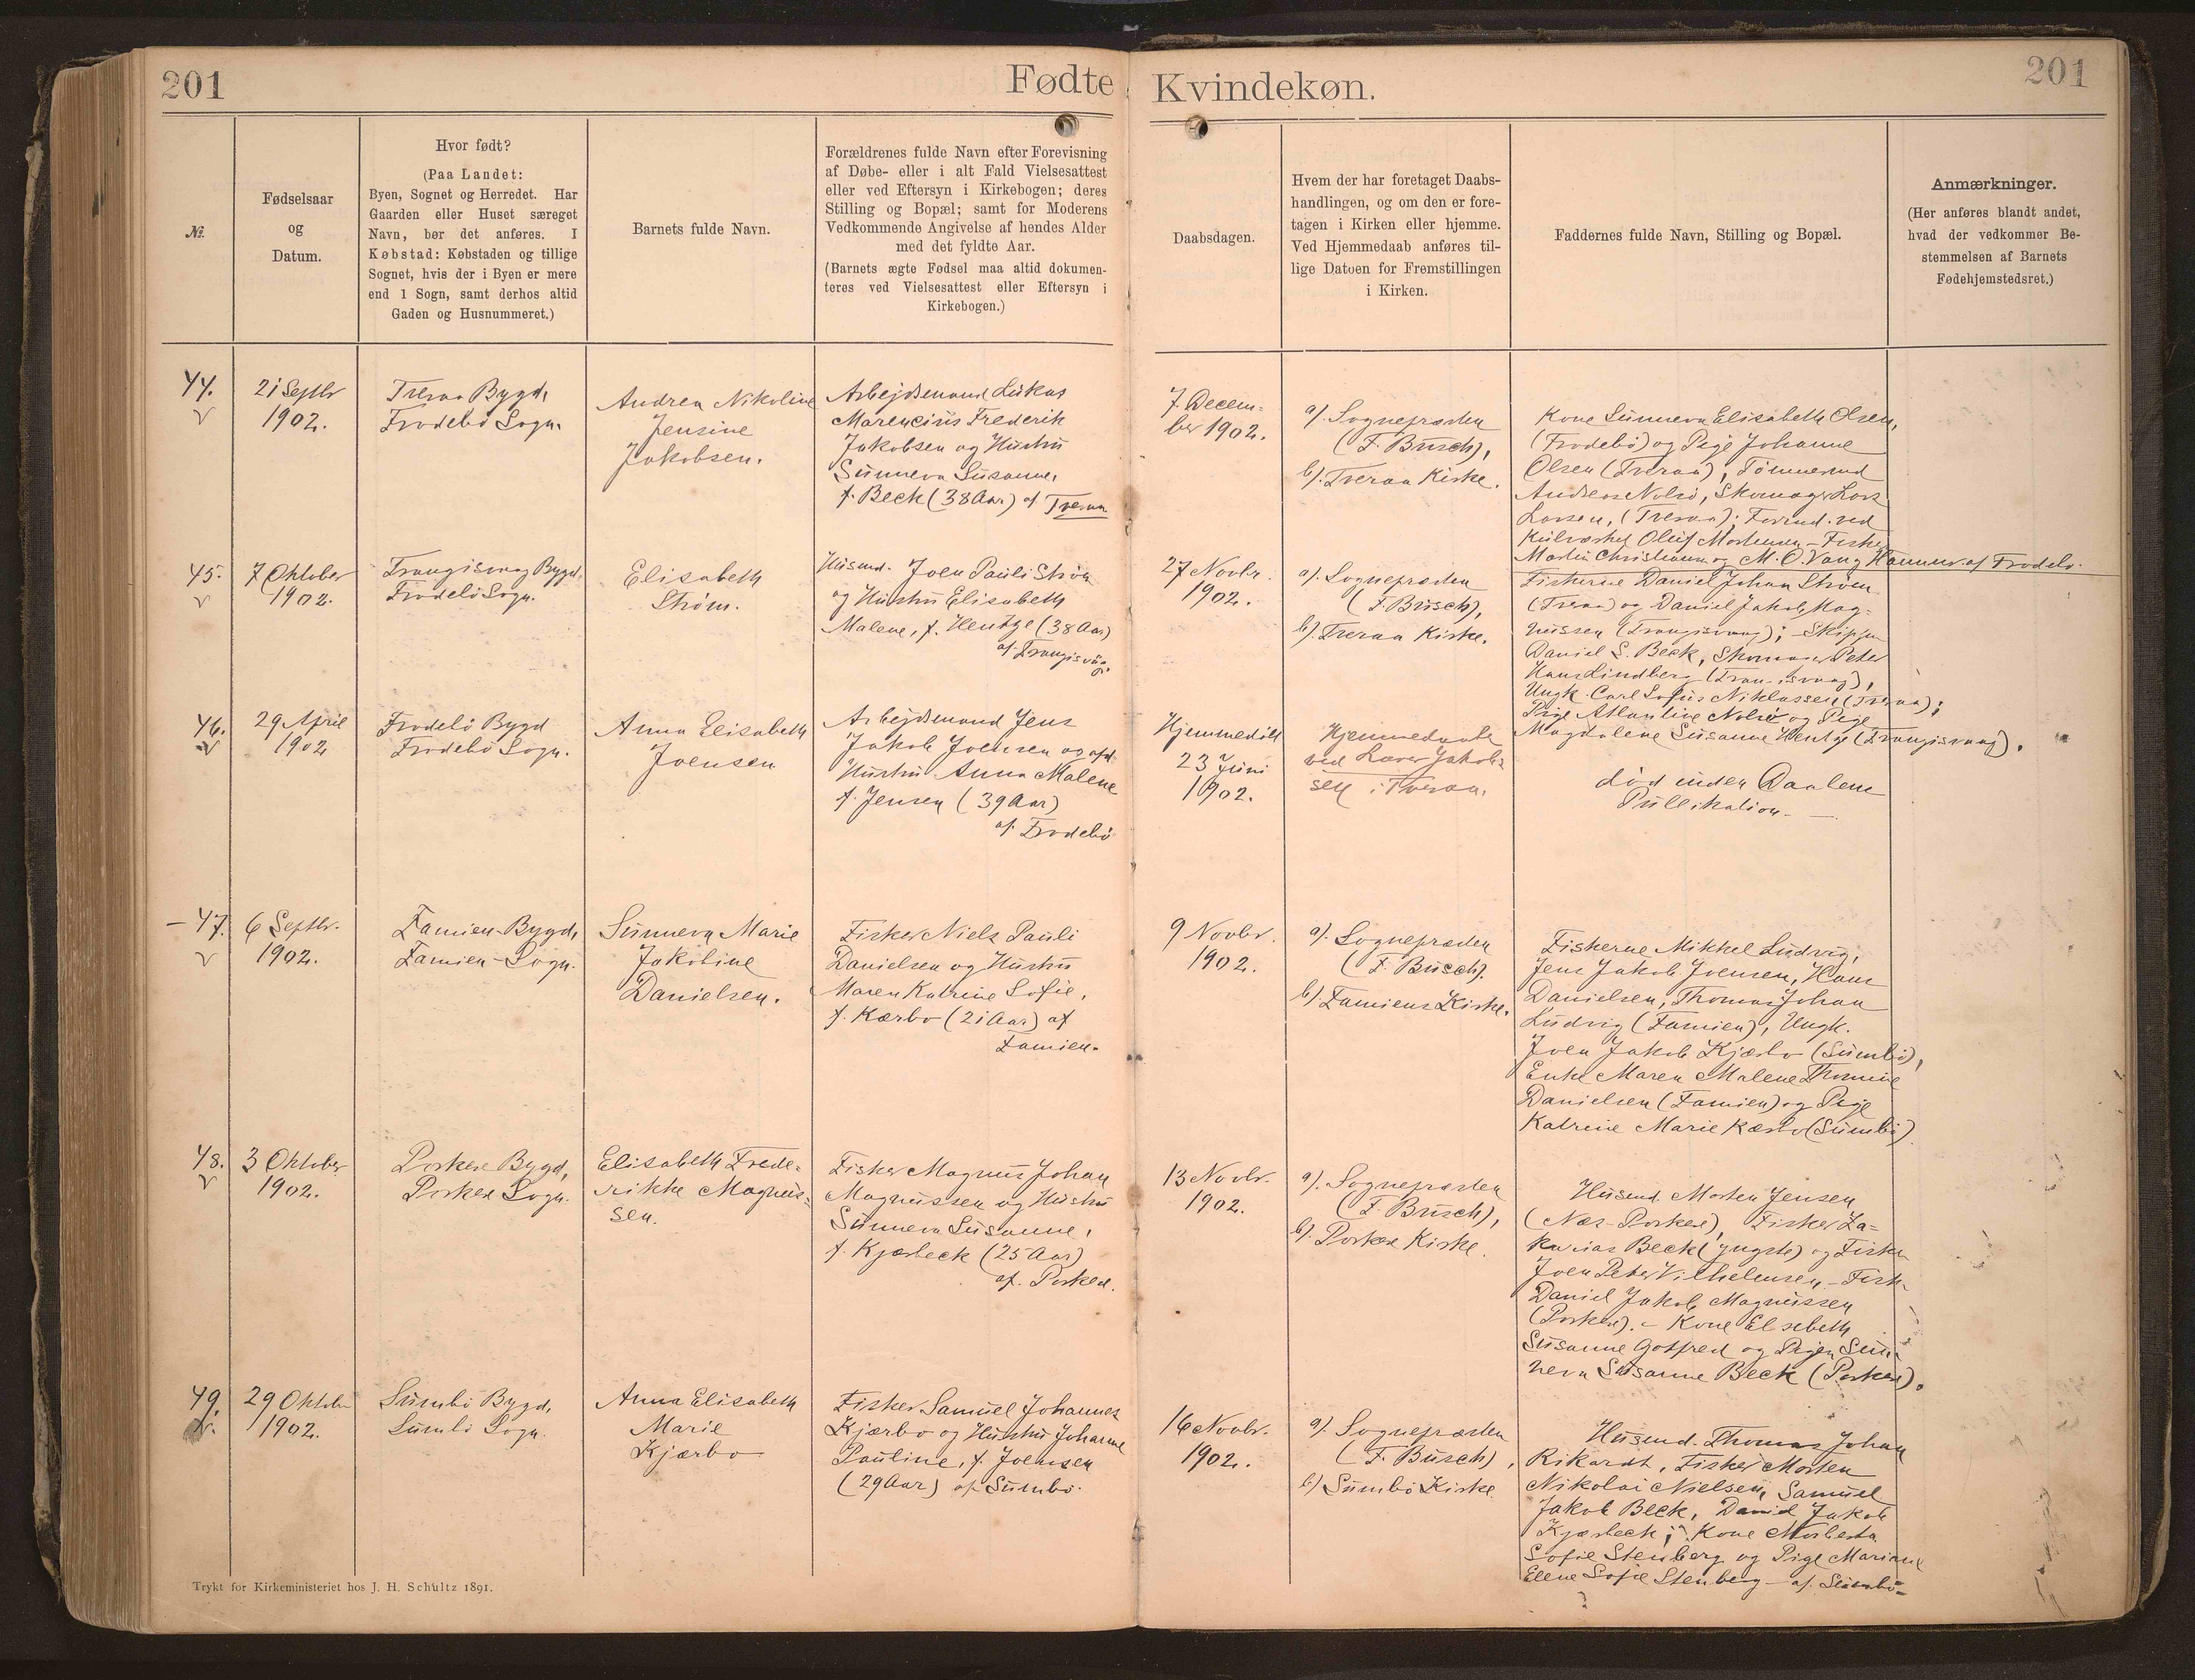 201
Fødte
Kvindekøn.
201
№.
Fødselsaar
og
Datum.
Hvor født?
(Paa Landet:
Byen, Sognet og Herredet. Har
Gaarden eller Huset særeget
Navn, bør det anføres. I
Købstad: Købstaden og tillige
Sognet, hvis der i Byen er mere
end 1 Sogn, samt derhos altid
Gaden og Husnummeret.)
Barnets fulde Navn.
Forældrenes fulde Navn efter Forevisning
af Døbe- eller i alt Fald Vielsesattest
eller ved Eftersyn i Kirkebogen; deres
Stilling og Bopæl; samt for Moderens
Vedkommende Angivelse af hendes Alder
med det fyldte Aar.
(Barnets ægte Fødsel maa altid dokumen-
teres ved Vielsesattest eller Eftersyn i
Kirkebogen.)
Daabsdagen.
Hvem der har foretaget Daabs-
handlingen, og om den er fore-
tagen i Kirken eller hjemme.
Ved Hjemmedaab anføres til-
lige Datoen for Fremstillingen
i Kirken.
Faddernes fulde Navn, Stilling og Bopæl.
Anmærkninger.
(Her anføres blandt andet,
hvad der vedkommer Be-
stemmelsen af Barnets
Fødehjemstedsret.)
44.
21 Septbr
1902.
Tveraa Bygd,
Frodebö Sogn.
Andrea Nikoline
Jensine
Jakobsen.
Arbejdsmand Lukas
Marencius Frederik
Jakobsen og Hustru
Sunneva Susanne,
f. Beck (38 Aar) af Tveraa
7. Decem-
ber 1902.
a). Sognepræsten
(F. Busch),
b). Tveraa Kirke.
Kone Sunneva Elisabeth Olsen,
(Frodebö) og Pige Johanne
Olsen (Tveraa), Tömmermd
Andreas Nolsö, Skomager Lars
Larsen, (Tveraa); Formd. ved
Kulværket Oluf Mortensen - Fisker
Martin Christiansen og M. O. Vang Hammer af Frodebö.
45.
7 Oktober
1902.
Trangisvaag Bygd,
Frodebö Sogn.
Elisabeth
Strøm.
Husmd. Joen Pauli Strøm
og Hustru Elisabeth
Malene, f. Hentze (38 Aar)
af Trangisvåg.
27 Novbr.
1902.
a). Sognepræsten
(F. Busch),
b). Tveraa Kirke.
Fiskerne Daniel Johan Strøm
(Tveraa) og Daniel Jakob Mag-
nussen (Trangisvaag); Skipper
Daniel S. Beck, Skomager Peter
Hans Lindberg (Trangisvaag),
Ungk. Carl Sofus Niklassen (Tveraa);
Pige Atlantine Nolsö og Pige
Magdalene Susanne Hentze (Trangisvaag).
46.
29 April
1902
Frodebö Bygd
Frodebö Sogn.
Anna Elisabeth
Joensen
Arbejdsmand Jens
Jakob Joensen og afd.
Hustru Anna Malene
f. Jensen (39 Aar)
af Frodebö
Hjemmedöbt
23 Juni
1902.
Hjemmedaabt
ved Lærer Jakob-
sen i Tveraa.
död inden Daabens
Publikation.
47.
6 Septbr.
1902.
Famien-Bygd,
Famien-Sogn.
Sunneva Marie
Jakobine
Danielsen.
Fisker Niels Pauli
Danielsen og Hustru
Maren Katrine Sofie,
f. Kærbo (21 Aar) af
Famien.
9 Novbr.
1902.
a). Sognepræsten
(F. Busch).
b). Famiens Kirke.
Fiskerne Mikkel Ludvig,
Jens Jakob Joensen, Hans
Danielsen, Thomas Johan
Ludvig (Famien), Ungk.
Joen Jakob Kjærbo (Sumbö),
Enke Maren Malene Thomine
Danielsen (Famien) og Pige
Katrine Marie Kærbo (Sumbö)
48.
3 Oktober
1902.
Porkere Bygd,
Porkere Sogn.
Elisabeth Frede-
rikke Magnus-
sen.
Fisker Magnus Johan
Magnussen og Hustru
Sunneva Susanne,
f. Kjærbeck (25 Aar)
af. Porkere.
13 Novbr.
1902.
a). Sognepræsten
(F. Busch),
b). Porkere Kirke.
Husmd. Morten Jensen
(Næs-Porkere), Fisker Za-
karias Beck (yngste) og Fisker
Joen Peter Vilhelmsen - Fisk.
Daniel Jakob Magnussen
(Porkere). - Kone Elisebeth
Susanne Gotfred og Pigen Sun-
neva Susanne Beck (Porkere).
49.
29 Oktober
1902.
Sumbö Bygd,
Sumbö Sogn.
Anna Elisabeth
Marie
Kjærbo
Fisker Samuel Johannes
Kjærbo og Hustru Johanne
Pauline, f. Joensen
(29 Aar) af Sumbö.
16 Novbr.
1902.
a). Sognepræsten
(F. Busch),
b) Sumbö Kirke.
Husmd. Thomas Johan
Rikardt, Fisker Morten
Nikolai Nielsen, Samuel
Jakob Beck, Daniel Jakob
Kjærbeck; Kone
Sofie Stenberg og Pige Mariane
Elene Sofie Stenberg - af. Sumbö-
Trykt for Kirkeministeriet hos J. H. Schultz 1891.